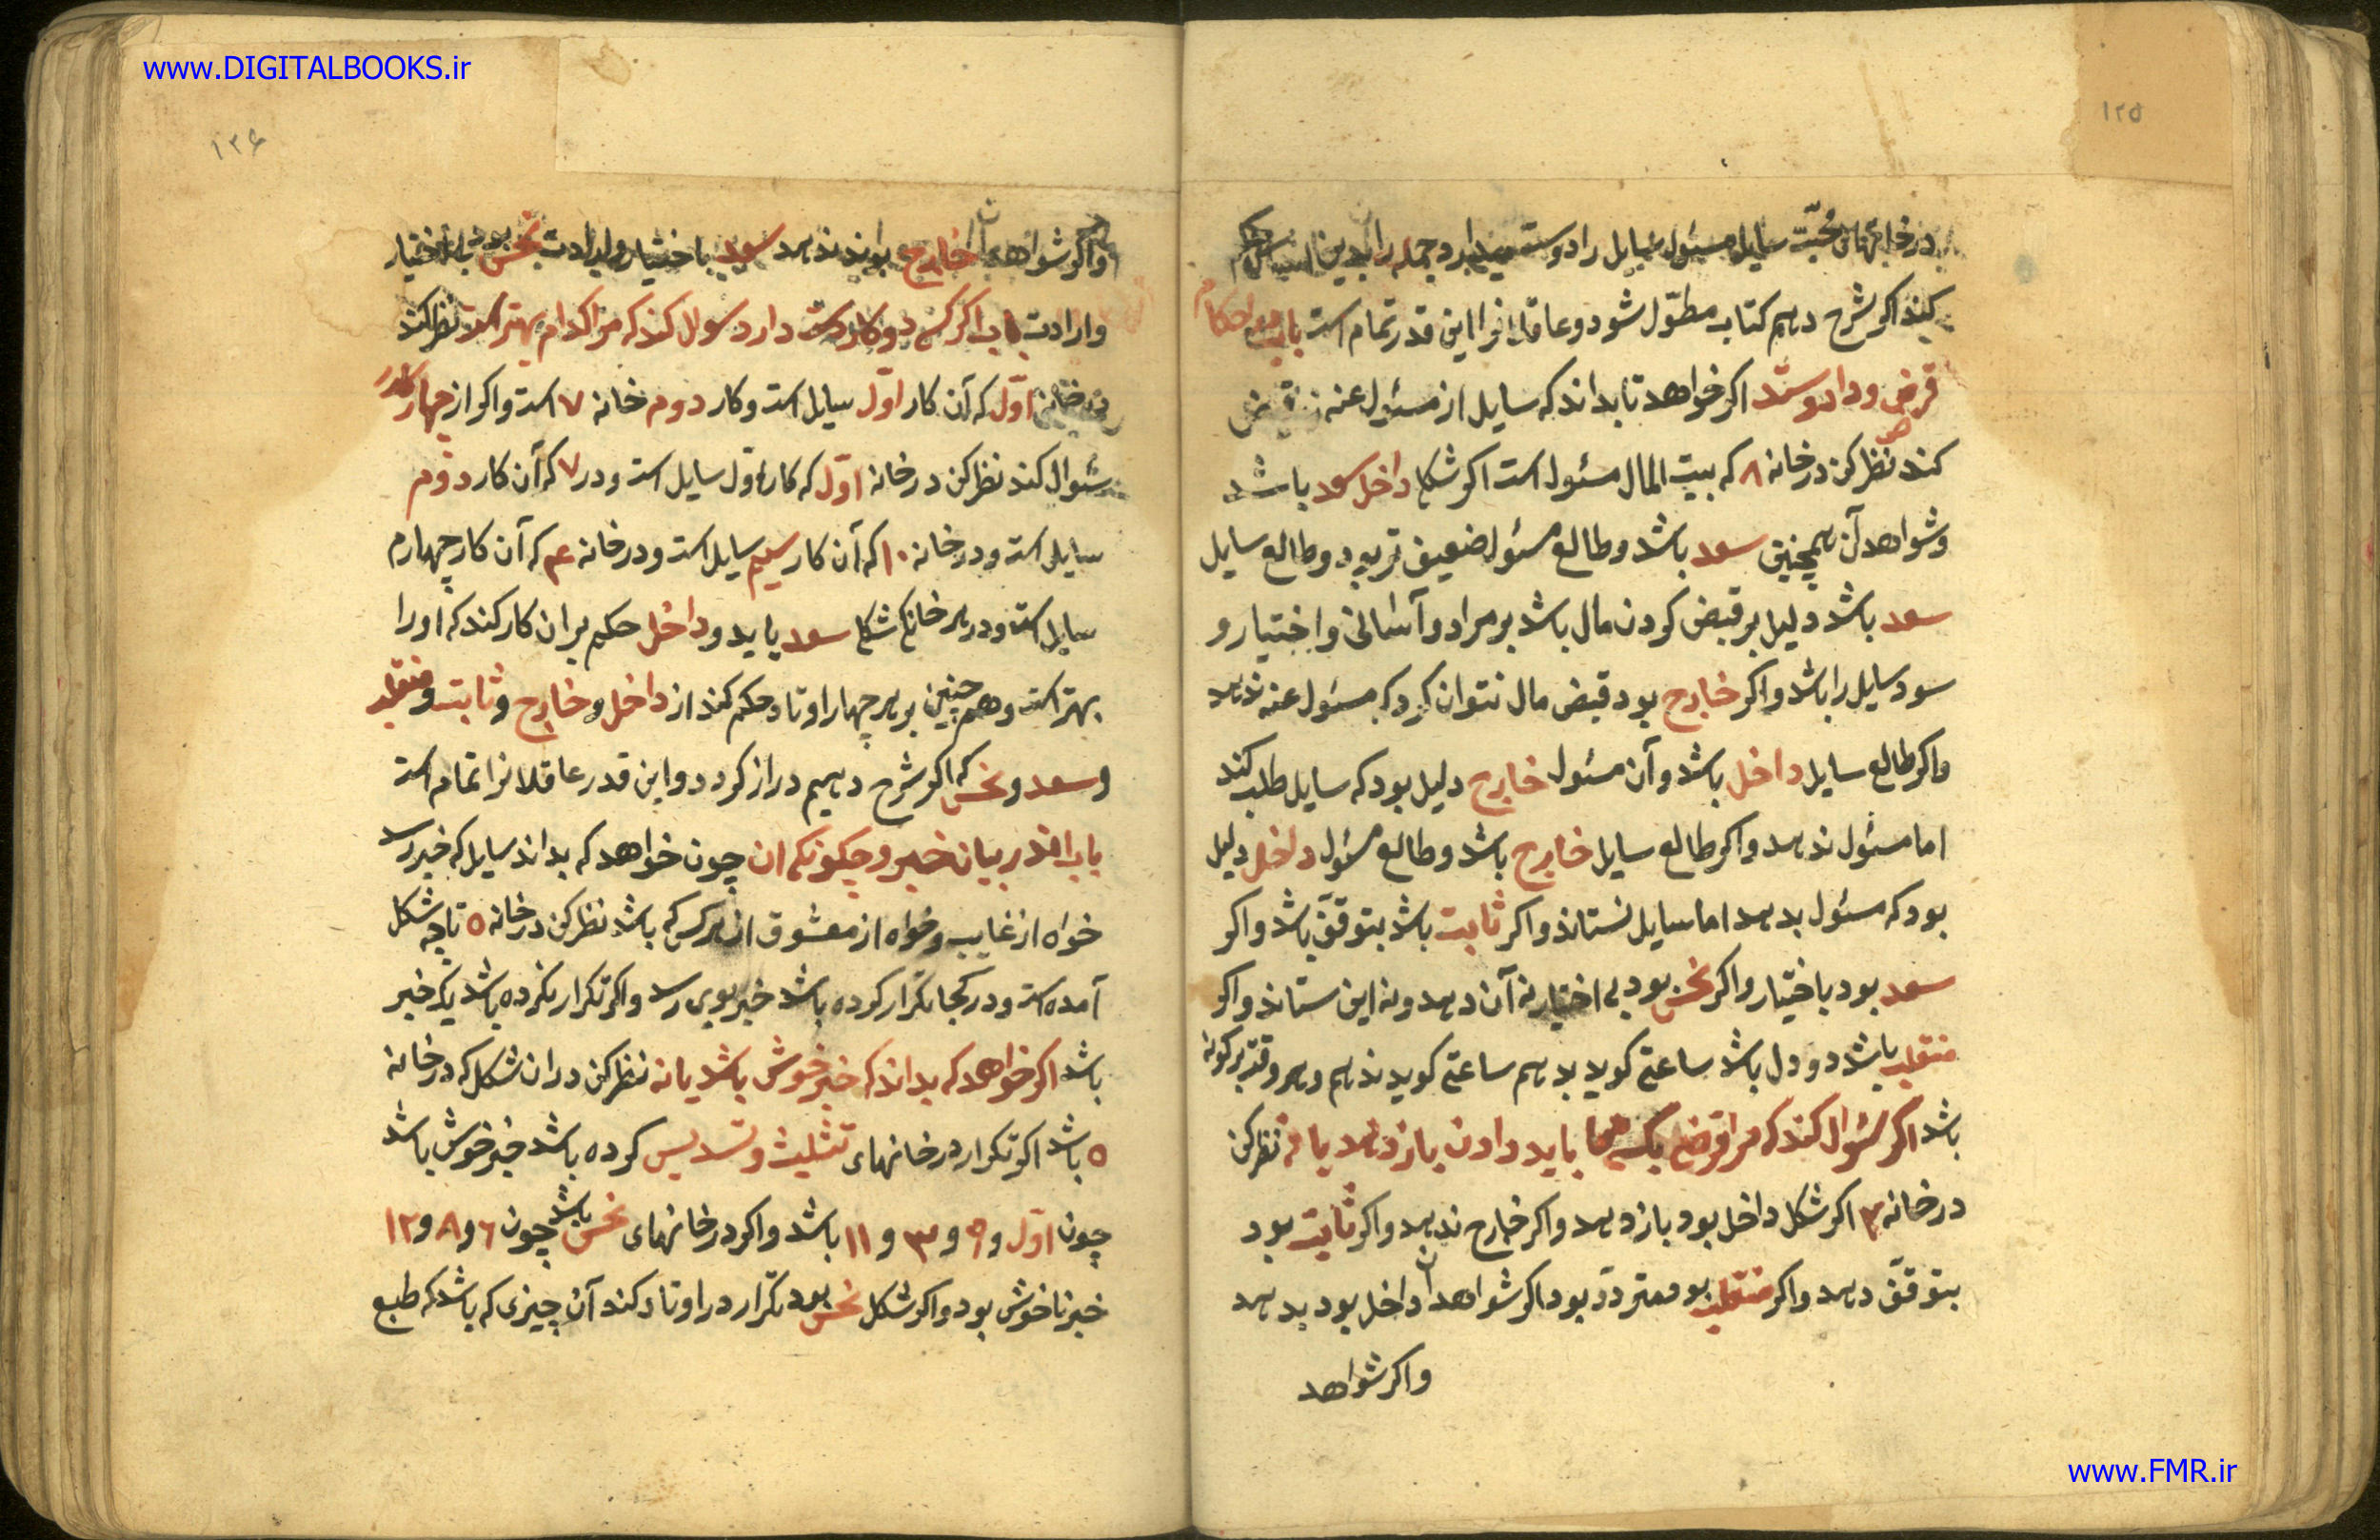 www.DIGITALBOOKS.ir
۱۲۵
در خانهای محبّت سایل مسئول سایل را دوست میدارد جمله را بدین
کند اکر شرح دهم کتاب مطوّل شود و عاقلانرا این قدر تمام است باب احکام
قرض و داد و ستد اکر خواهد تا بداند که سایل از مسئول عنه قبض
کند نظر کن در خانه ۸ که بیت المال مسئول است اکر شکل داخل سعد باشد
و شواهد آن همچنین سعد باشد و طالع مسئول ضعیف تر بود و طالع سایل
سعد باشد دلیل بر قبض کردن مال باشد بر مراد و آسانی و اختیار و
سود سایل را باشد و اکر خارج بود قبض مال نتوان کرد که مسئول عنه ندهد
و اکر طالع سایل داخل باشد و آن مسئول خارج دلیل بود که سایل طلب کند
اما مسئول ندهد و اکر طالع سایل خارج باشد و طالع مسئول داخل دلیل
بود که مسئول بدهد اما سایل نستاند و اکر ثابت باشد بتوقف باشد و اکر
سعد بود باختیار و اکر نحس بود بی اختیار نه آن دهد و نه این ستاند و اکر
منقلب باشد دو دل باشد ساعتی کوید بدهم ساعتی کوید ندهم و هر وقت بر کونه
باشد اکر سئوال کند که مرا قرض بکسی باید دادن باز دهد یا نه نظر کن
در خانه ۲ اکر شکل داخل بود باز دهد و اکر خارج ندهد و اکر ثابت بود
بتوقف دهد و اکر منقلب بود متردّد بود اکر شواهد آن داخل بود بدهد
و اکر شواهد
۱۲۶
و اکر شواهد آن خارج بوند ندهد سعد باختیار و ارادت نحس بود بی اختیار
و ارادت باب اکر کسی دو کار در دست دارد سوال کند که مرا کدام بهتر است نظر کند
در خانه اوّل که آن کار اوّل سایل است و کار دوم خانه ۷ است و اکر از چهار کار
سئوال کند نظر کن در خانه اوّل که کار اول سایل است و در ۷ که آن کار دوّم
سایل است و در خانه ۱۰ که آن کار سیم سایل است و در خانه ۴ که آن کار چهارم
سایل است و در هر خانه که شکل سعد یابد و داخل حکم بران کار کند که او را
بهتر است و همچنین بر هر چهار اوتاد حکم کند از داخل و خارج و ثابت و منقلب
و سعد و نحس که اکر شرح دهیم دراز کردد و این قدر عاقلانرا تمام است
باب اندر بیان خبر و چکونکی ان چون خواهد که بداند سایل که خبر رسد
خواه از غایب و خواه از معشوق از هر کس که باشد نظر کن در خانه ۵ تا چه شکل
آمده است و در کجا تکرار کرده باشد خبر بوی رسد و اکر تکرار نکرده باشد یک خبر
باشد اکر خواهد که بداند که خبر خوش باشد یا نه نظر کن دران شکل که در خانه
۵ باشد اکر تکرار در خانهای تثلیث و تسدیس کرده باشد خبر خوش باشد
چون اوّل و ۹ و ۳ و ۱۱ باشد و اکر در خانهای نحس باشد چون ۶ و ۸ و ۱۲
خبر ناخوش بود و اکر شکل نحس بود تکرار در اوتاد کند آن چیزی که باشد که طبع
www.FMR.ir